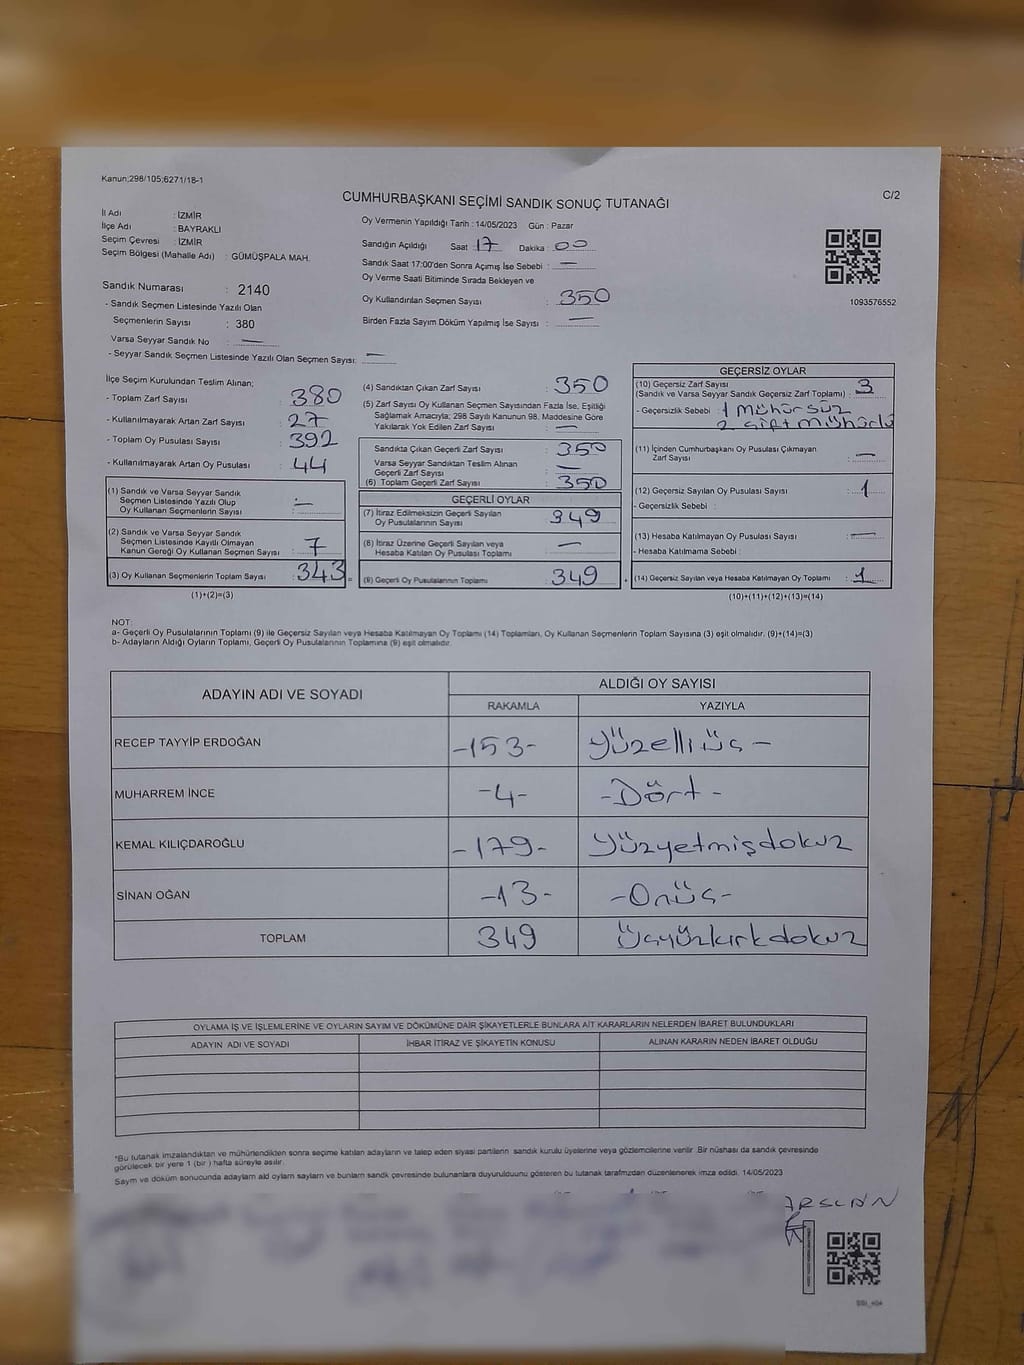 Kanun;298/105;6271/18-1
CUMHURBAŞKANI SEÇİMİ SANDIK SONUÇ TUTANAĞI
C/2
İl Adı : İZMİR
İlçe Adı : BAYRAKLI
Seçim Çevresi : İZMİR
Seçim Bölgesi (Mahalle Adı) : GÜMÜŞPALA MAH.
Sandık Numarası : 2140
- Sandık Seçmen Listesinde Yazılı Olan
Seçmenlerin Sayısı : 380
Varsa Seyyar Sandık No : —
- Seyyar Sandık Seçmen Listesinde Yazılı Olan Seçmen Sayısı: —
Oy Vermenin Yapıldığı Tarih : 14/05/2023 Gün : Pazar
Sandığın Açıldığı Saat : 17 Dakika : 00
Sandık Saat 17:00'den Sonra Açımış İse Sebebi : —
Oy Verme Saati Bitiminde Sırada Bekleyen ve
Oy Kullandırılan Seçmen Sayısı : 350
Birden Fazla Sayım Döküm Yapılmış İse Sayısı : —
1093576552
İlçe Seçim Kurulundan Teslim Alınan;
- Toplam Zarf Sayısı : 380
- Kullanılmayarak Artan Zarf Sayısı : 27
- Toplam Oy Pusulası Sayısı : 392
- Kullanılmayarak Artan Oy Pusulası : 44
(1) Sandık ve Varsa Seyyar Sandık
Seçmen Listesinde Yazılı Olup
Oy Kullanan Seçmenlerin Sayısı : —
(2) Sandık ve Varsa Seyyar Sandık
Seçmen Listesinde Kayıtlı Olmayan
Kanun Gereği Oy Kullanan Seçmen Sayısı : 7
(3) Oy Kullanan Seçmenlerin Toplam Sayısı : 343
(1)+(2)=(3)
(4) Sandıktan Çıkan Zarf Sayısı : 350
(5) Zarf Sayısı Oy Kullanan Seçmen Sayısından Fazla İse, Eşitliği
Sağlamak Amacıyla; 298 Sayılı Kanunun 98. Maddesine Göre
Yakılarak Yok Edilen Zarf Sayısı : —
Sandıkta Çıkan Geçerli Zarf Sayısı : 350
Varsa Seyyar Sandıktan Teslim Alınan
Geçerli Zarf Sayısı : —
(6) Toplam Geçerli Zarf Sayısı : 350
GEÇERLİ OYLAR
(7) İtiraz Edilmeksizin Geçerli Sayılan
Oy Pusulalarının Sayısı : 349
(8) İtiraz Üzerine Geçerli Sayılan veya
Hesaba Katılan Oy Pusulası Toplamı : —
(9) Geçerli Oy Pusulalarının Toplamı : 349
GEÇERSİZ OYLAR
(10) Geçersiz Zarf Sayısı : 3
(Sandık ve Varsa Seyyar Sandık Geçersiz Zarf Toplamı)
- Geçersizlik Sebebi : 1 mühürsüz
2 çift mühürlü
(11) İçinden Cumhurbaşkanı Oy Pusulası Çıkmayan
Zarf Sayısı : —
(12) Geçersiz Sayılan Oy Pusulası Sayısı : 1
- Geçersizlik Sebebi :
(13) Hesaba Katılmayan Oy Pusulası Sayısı : —
- Hesaba Katılmama Sebebi :
(14) Geçersiz Sayılan veya Hesaba Katılmayan Oy Toplamı : 1
(10)+(11)+(12)+(13)=(14)
NOT:
a- Geçerli Oy Pusulalarının Toplamı (9) ile Geçersiz Sayılan veya Hesaba Katılmayan Oy Toplamı (14) Toplamları, Oy Kullanan Seçmenlerin Toplam Sayısına (3) eşit olmalıdır. (9)+(14)=(3)
b- Adayların Aldığı Oyların Toplamı, Geçerli Oy Pusulalarının Toplamına (9) eşit olmalıdır.
ADAYIN ADI VE SOYADI ALDIĞI OY SAYISI
RAKAMLA YAZIYLA
RECEP TAYYİP ERDOĞAN -153- Yüzelliüç-
MUHARREM İNCE -4- -Dört-
KEMAL KILIÇDAROĞLU -179- Yüzyetmişdokuz
SİNAN OĞAN -13- -Onüç-
TOPLAM 349 Üçyüzkırkdokuz
OYLAMA İŞ VE İŞLEMLERİNE VE OYLARIN SAYIM VE DÖKÜMÜNE DAİR ŞİKAYETLERLE BUNLARA AİT KARARLARIN NELERDEN İBARET BULUNDUKLARI
ADAYIN ADI VE SOYADI İHBAR İTİRAZ VE ŞİKAYETİN KONUSU ALINAN KARARIN NEDEN İBARET OLDUĞU
*Bu tutanak imzalandıktan ve mühürlendikten sonra seçime katılan adayların ve talep eden siyasi partilerin sandık kurulu üyelerine veya gözlemcilerine verilir. Bir nüshası da sandık çevresinde
görülecek bir yere 1 (bir) hafta süreyle asılır.
Sayım ve döküm sonucunda adayların ald oyların sayların ve bunların sandık çevresinde bulunanlara duyurulduunu gösteren bu tutanak tarafmzdan düzenlenerek imza edildi. 14/05/2023
ARSLAN